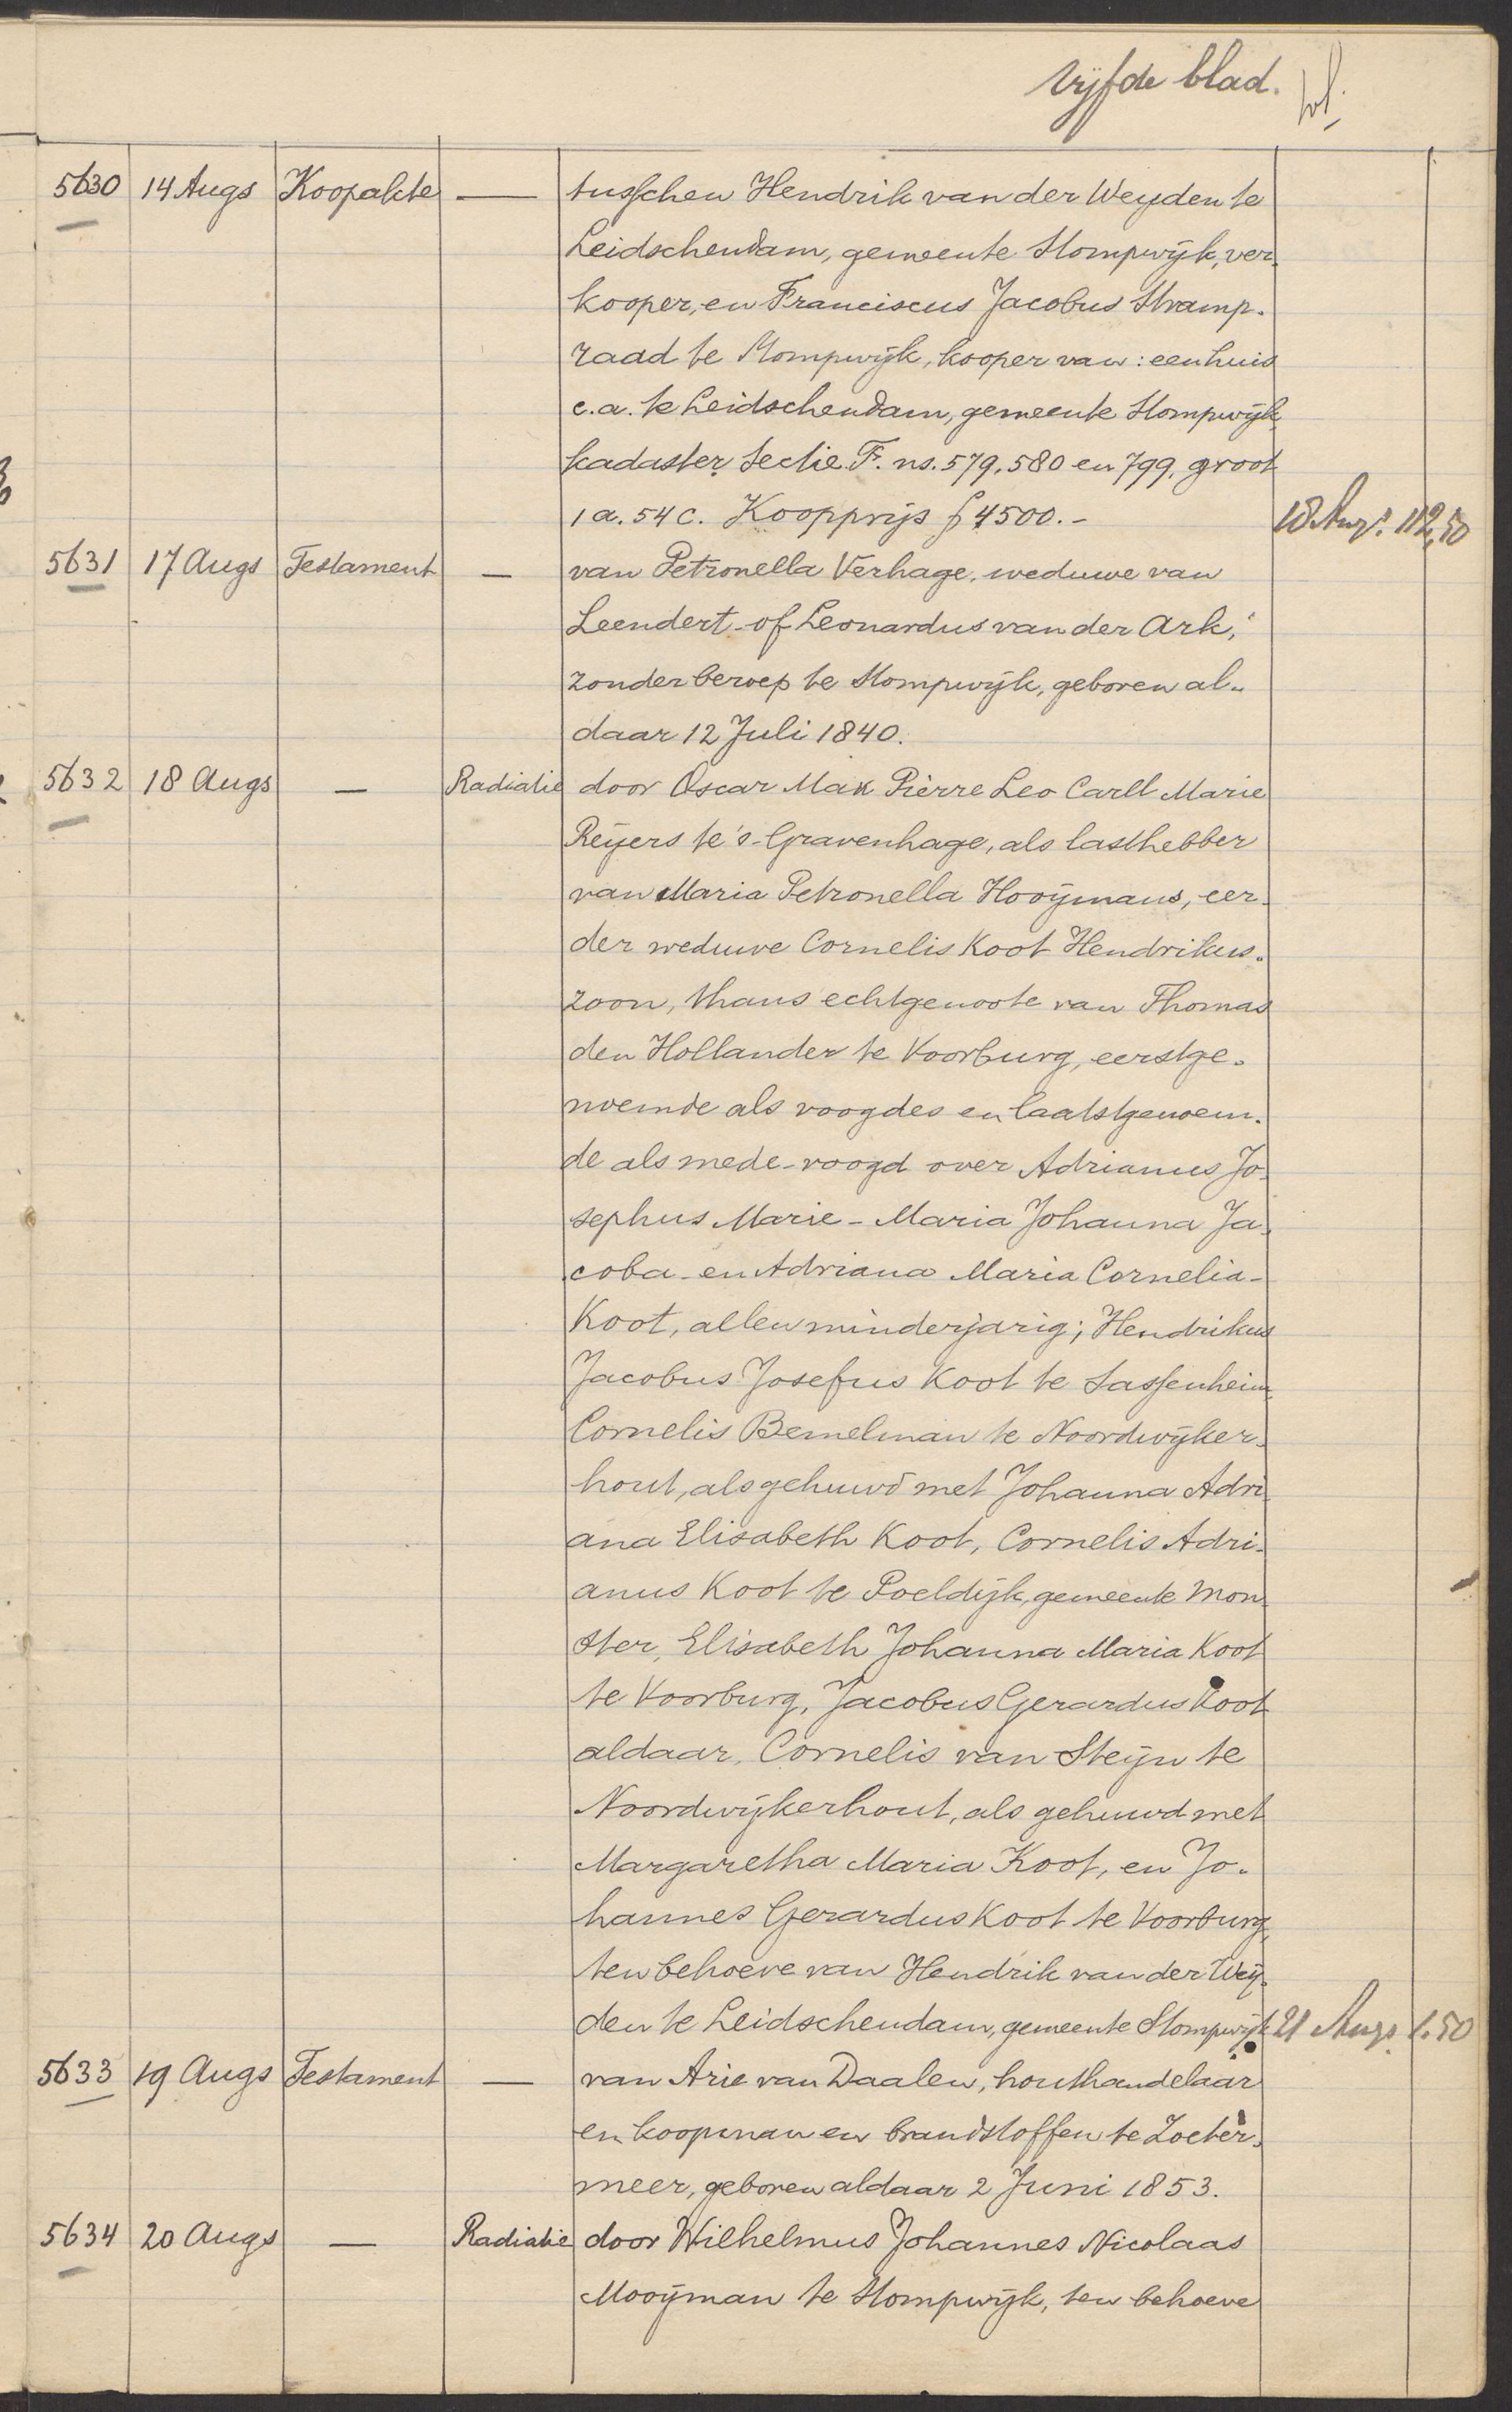 Vijfde blad.
5630 14 Augs Koopakte — tusschen Hendrik van der Weyden te
Leidschendam, gemeente Stompwijk, ver-
kooper, en Franciscus Jacobus Stramp-
raad te Stompwijk, kooper van: een huis
c.a. te Leidschendam, gemeente Stompwijk
kadaster Sectie F. ns. 579, 580 en 799, groot
1 a. 54 c. Koopprijs f 4500.- 18 Augs. 112,50
5631 17 Augs Testament — van Petronella Verhage, weduwe van
Leendert of Leonardus van der Ark,
zonder beroep te Stompwijk, geboren al-
daar 12 Juli 1840.
5632 18 Augs — Radiatie door Oscar Max Pièrre Leo Carll Marie
Reijers te 's-Gravenhage, als lasthebber
van Maria Petronella Hooijmans, eer-
der weduwe Cornelis Koot Hendrikus-
zoon, thans echtgenoote van Thomas
den Hollander te Voorburg, eerstge-
noemde als voogdes en laatstgenoem-
de als mede-voogd over Adrianus Jo-
sephus Marie - Maria Johanna Ja-
coba - en Adriana Maria Cornelia -
Koot, allen minderjarig; Hendrikus
Jacobus Josefus Koot te Sassenheim
Cornelis Bemelman te Noordwijker-
hout, als gehuwd met Johanna Adri-
ana Elisabeth Koot, Cornelis Adri-
anus Koot te Poeldijk, gemeente Mon-
ster, Elisabeth Johanna Maria Koot
te Voorburg, Jacobus Gerardus Koot
aldaar, Cornelis van Steijn te
Noordwijkerhout, als gehuwd met
Margaretha Maria Koot, en Jo-
hannes Gerardus Koot te Voorburg,
ten behoeve van Hendrik van der Weij-
den te Leidschendam, gemeente Stompwijk 21 Augs. 1.50
5633 19 Augs Testament — van Arie van Daalen, houthandelaar
en koopman en brandstoffen te Zoeter-
meer, geboren aldaar 2 Juni 1853.
5634 20 Augs — Radiatie door Wilhelmus Johannes Nicolaas
Mooijman te Stompwijk, ten behoeve